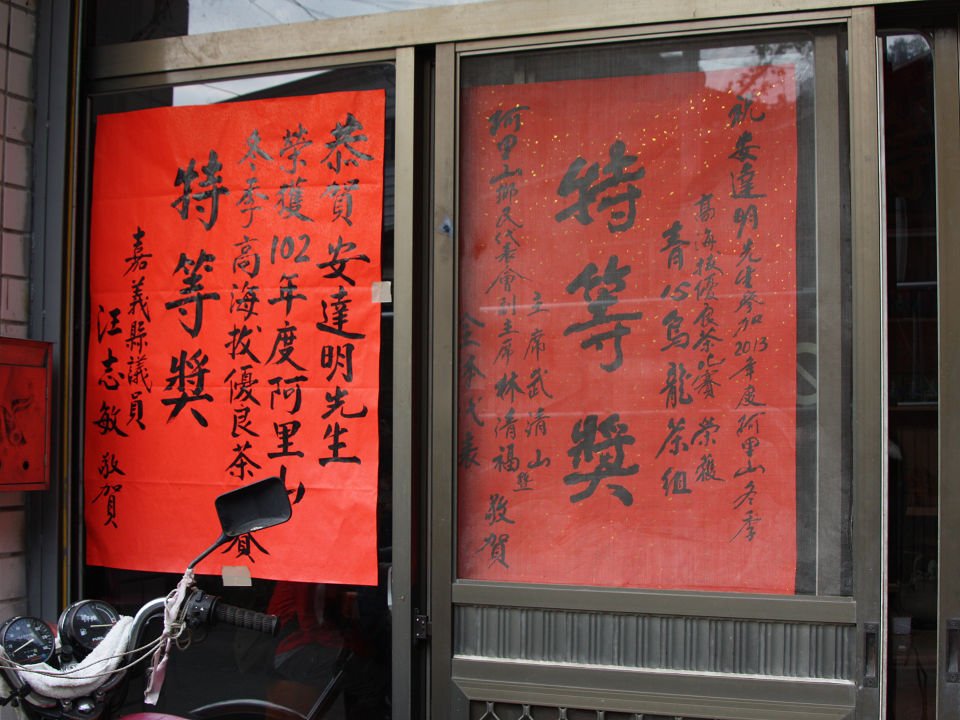 恭賀安達明先生
榮獲102年度阿里山
冬季高海拔優良茶 賽
特等獎
嘉義縣議員
汪志敏 敬賀
祝安達明先生參加2013年度阿里山冬季
高海拔優良茶比賽 榮獲
青心烏龍茶組
特等獎
主席 武清山
阿里山鄉民代表會副主席 林清福 暨 敬賀
全体代表